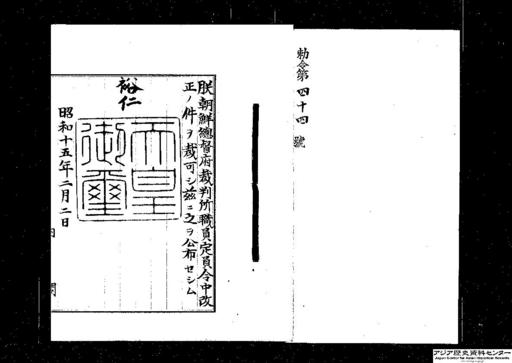 勅令第四十四號
朕朝鮮總督府裁判所職員定員令中改
正ノ件ヲ裁可シ茲ニ之ヲ公布セシム
裕仁
天皇御璽
昭和十五年二月二日
アジア歴史資料センター
Japan Center for Asian Historical Records